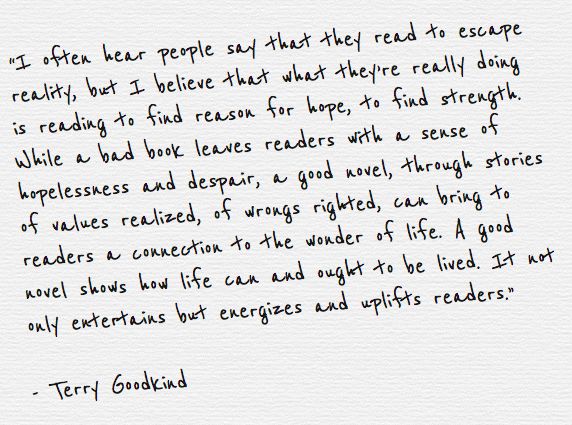 "I often hear people say that they read to escape
reality, but I believe that what they're really doing
is reading to find reason for hope, to find strength.
While a bad book leaves readers with a sense of
hopelessness and despair, a good novel, through stories
of values realized, of wrongs righted, can bring to
readers a connection to the wonder of life. A good
novel shows how life can and ought to be lived. It not
only entertains but energizes and uplifts readers."
- Terry Goodkind